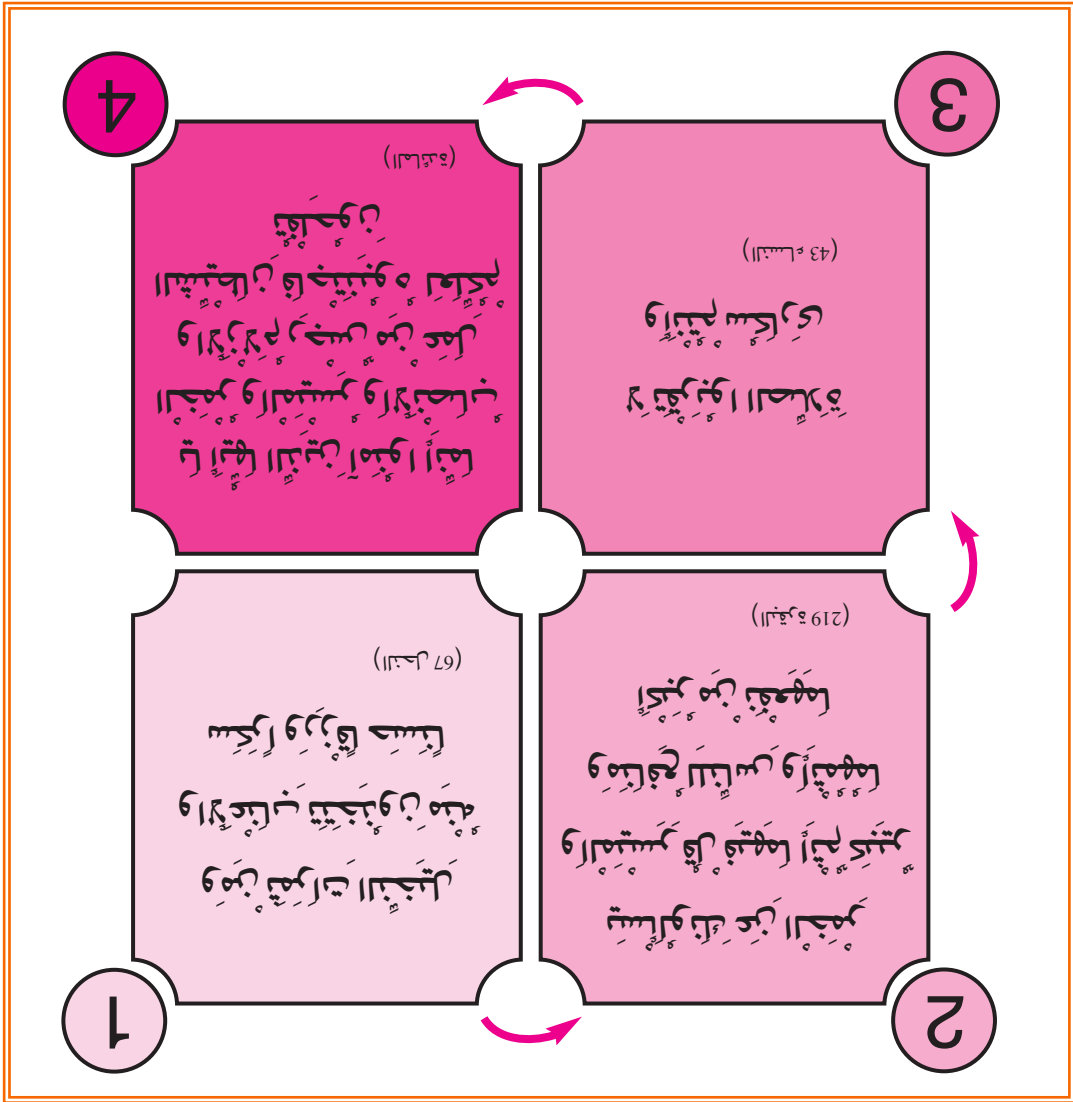 1
وَمِنْ ثَمَرَاتِ النَّخِيلِ
والأَعْنَابِ تَتَّخِذُونَ مِنْهُ
سَكَراً وَرِزْقاً حَسَناً
(النحل 67)
2
يَسْأَلُونَكَ عَنِ الْخَمْرِ
والْمَيْسِرِ قُلْ فِيهِمَا إِثْمٌ كَبِيرٌ
وَمَنَافِعُ لِلنَّاسِ وَإِثْمُهُمَا
أَكْبَرُ مِنْ نَفْعِهِمَا
(البقرة 219)
3
لَا تَقْرَبُوا الصَّلَاةَ
وَأَنْتُمْ سُكَارَى
(النساء 43)
4
يَا أَيُّهَا الَّذِينَ آمَنُوا إِنَّمَا
الْخَمْرُ وَالْمَيْسِرُ وَالْأَنْصَابُ
وَالْأَزْلَامُ رِجْسٌ مِنْ عَمَلِ
الشَّيْطَانِ فَاجْتَنِبُوهُ لَعَلَّكُمْ
تُفْلِحُونَ
(المائدة)